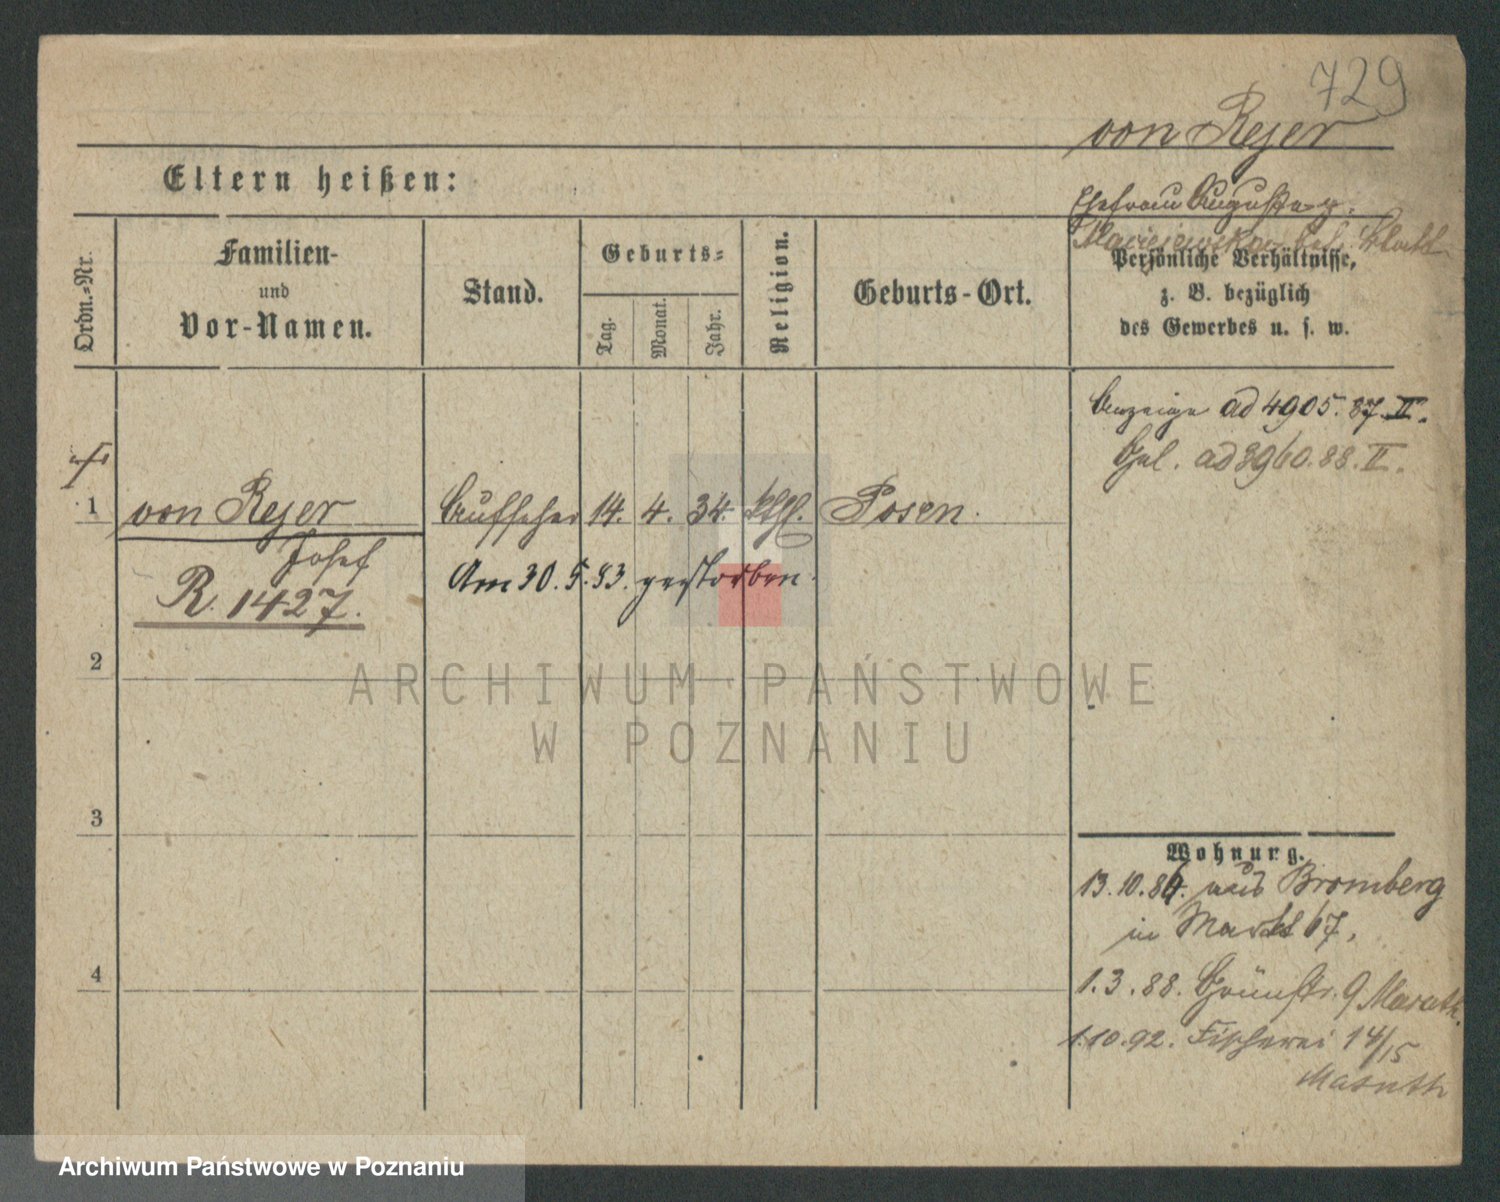 729
von Rejer
Eltern heißen:
Ehefrau Auguste g.
Ordn.-Nr.
Familien-
und
Vor-Namen.
Stand.
Geburts-
Tag.
Monat.
Jahr.
Religion.
Geburts-Ort.
Persönliche Verhältnisse,
z. B. bezüglich
des Gewerbes u. s. w.
Anzeige ad 4905. 87 II.
ad 3960. 88. II.
1 von Rejer Aufseher 14. 4. 34. kthl. Posen.
Josef
Am 30. 5. 93. gestorben.
R. 1427.
2
ARCHIWUM PAŃSTWOWE
W POZNANIU
3
Wohnung.
13. 10. 86. aus Bromberg
in Markt 67.
4
1. 3. 88. Grünstr. 9
1. 10. 92. Fischerei 14/15
Archiwum Państwowe w Poznaniu